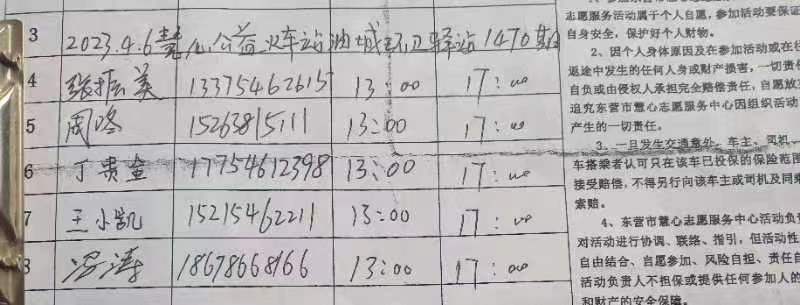 3 2023.4.6慧心公益火车站油城环卫驿站1470期
4 张振美 13375462615 13:00 17:00
5 周咚 15263815111 13:00 17:00
6 丁贵金 17754612398 13:00 17:00
7 王小凯 15215462211 13:00 17:00
8 冯涛 18678668166 13:00 17:00
志愿服务活动属于个人自愿,参加活动要保证
自身安全,保护好个人财物。
2、因个人身体原因及在参加活动或在往
返途中发生的任何人身或财产损害,一切责任
自负或由侵权人承担完全赔偿责任,自愿放弃
追究东营市慧心志愿服务中心因组织活动
产生的一切责任。
3、一旦发生交通意外,车主、司机、
车搭乘者认可只在该车已投保的保险范围
接受赔偿,不得另行向该车主或司机及同乘
索赔。
4、东营市慧心志愿服务中心活动负
对活动进行协调、联络、指引,但活动性
自由结合、自愿参加、风险自担、责任自
活动负责人不担保或提供任何参加人的
和财产的安全保障。